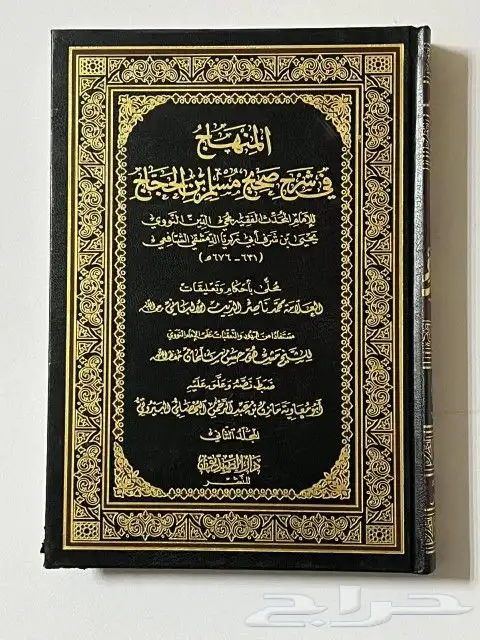 المنهاج
في شرح صحيح مسلم بن الحجاج
للإمام المحدث الفقيه محيي الدين النووي
يحيى بن شرف أبي زكريا الدمشقي الشافعي
(٦٣١ - ٦٧٦ هـ)
محلى بأحكام وتعليقات
العلامة محمد ناصر الدين الألباني رحمه الله
مستفادا من الردود والتعقبات على الإمام النووي
للشيخ مشهور حسن سلمان حفظه الله
ضبط نصه وعلق عليه
أبو معاوية مازن بن عبد الرحمن البحصلي البيروتي
المجلد الثاني
للنشر
حراج